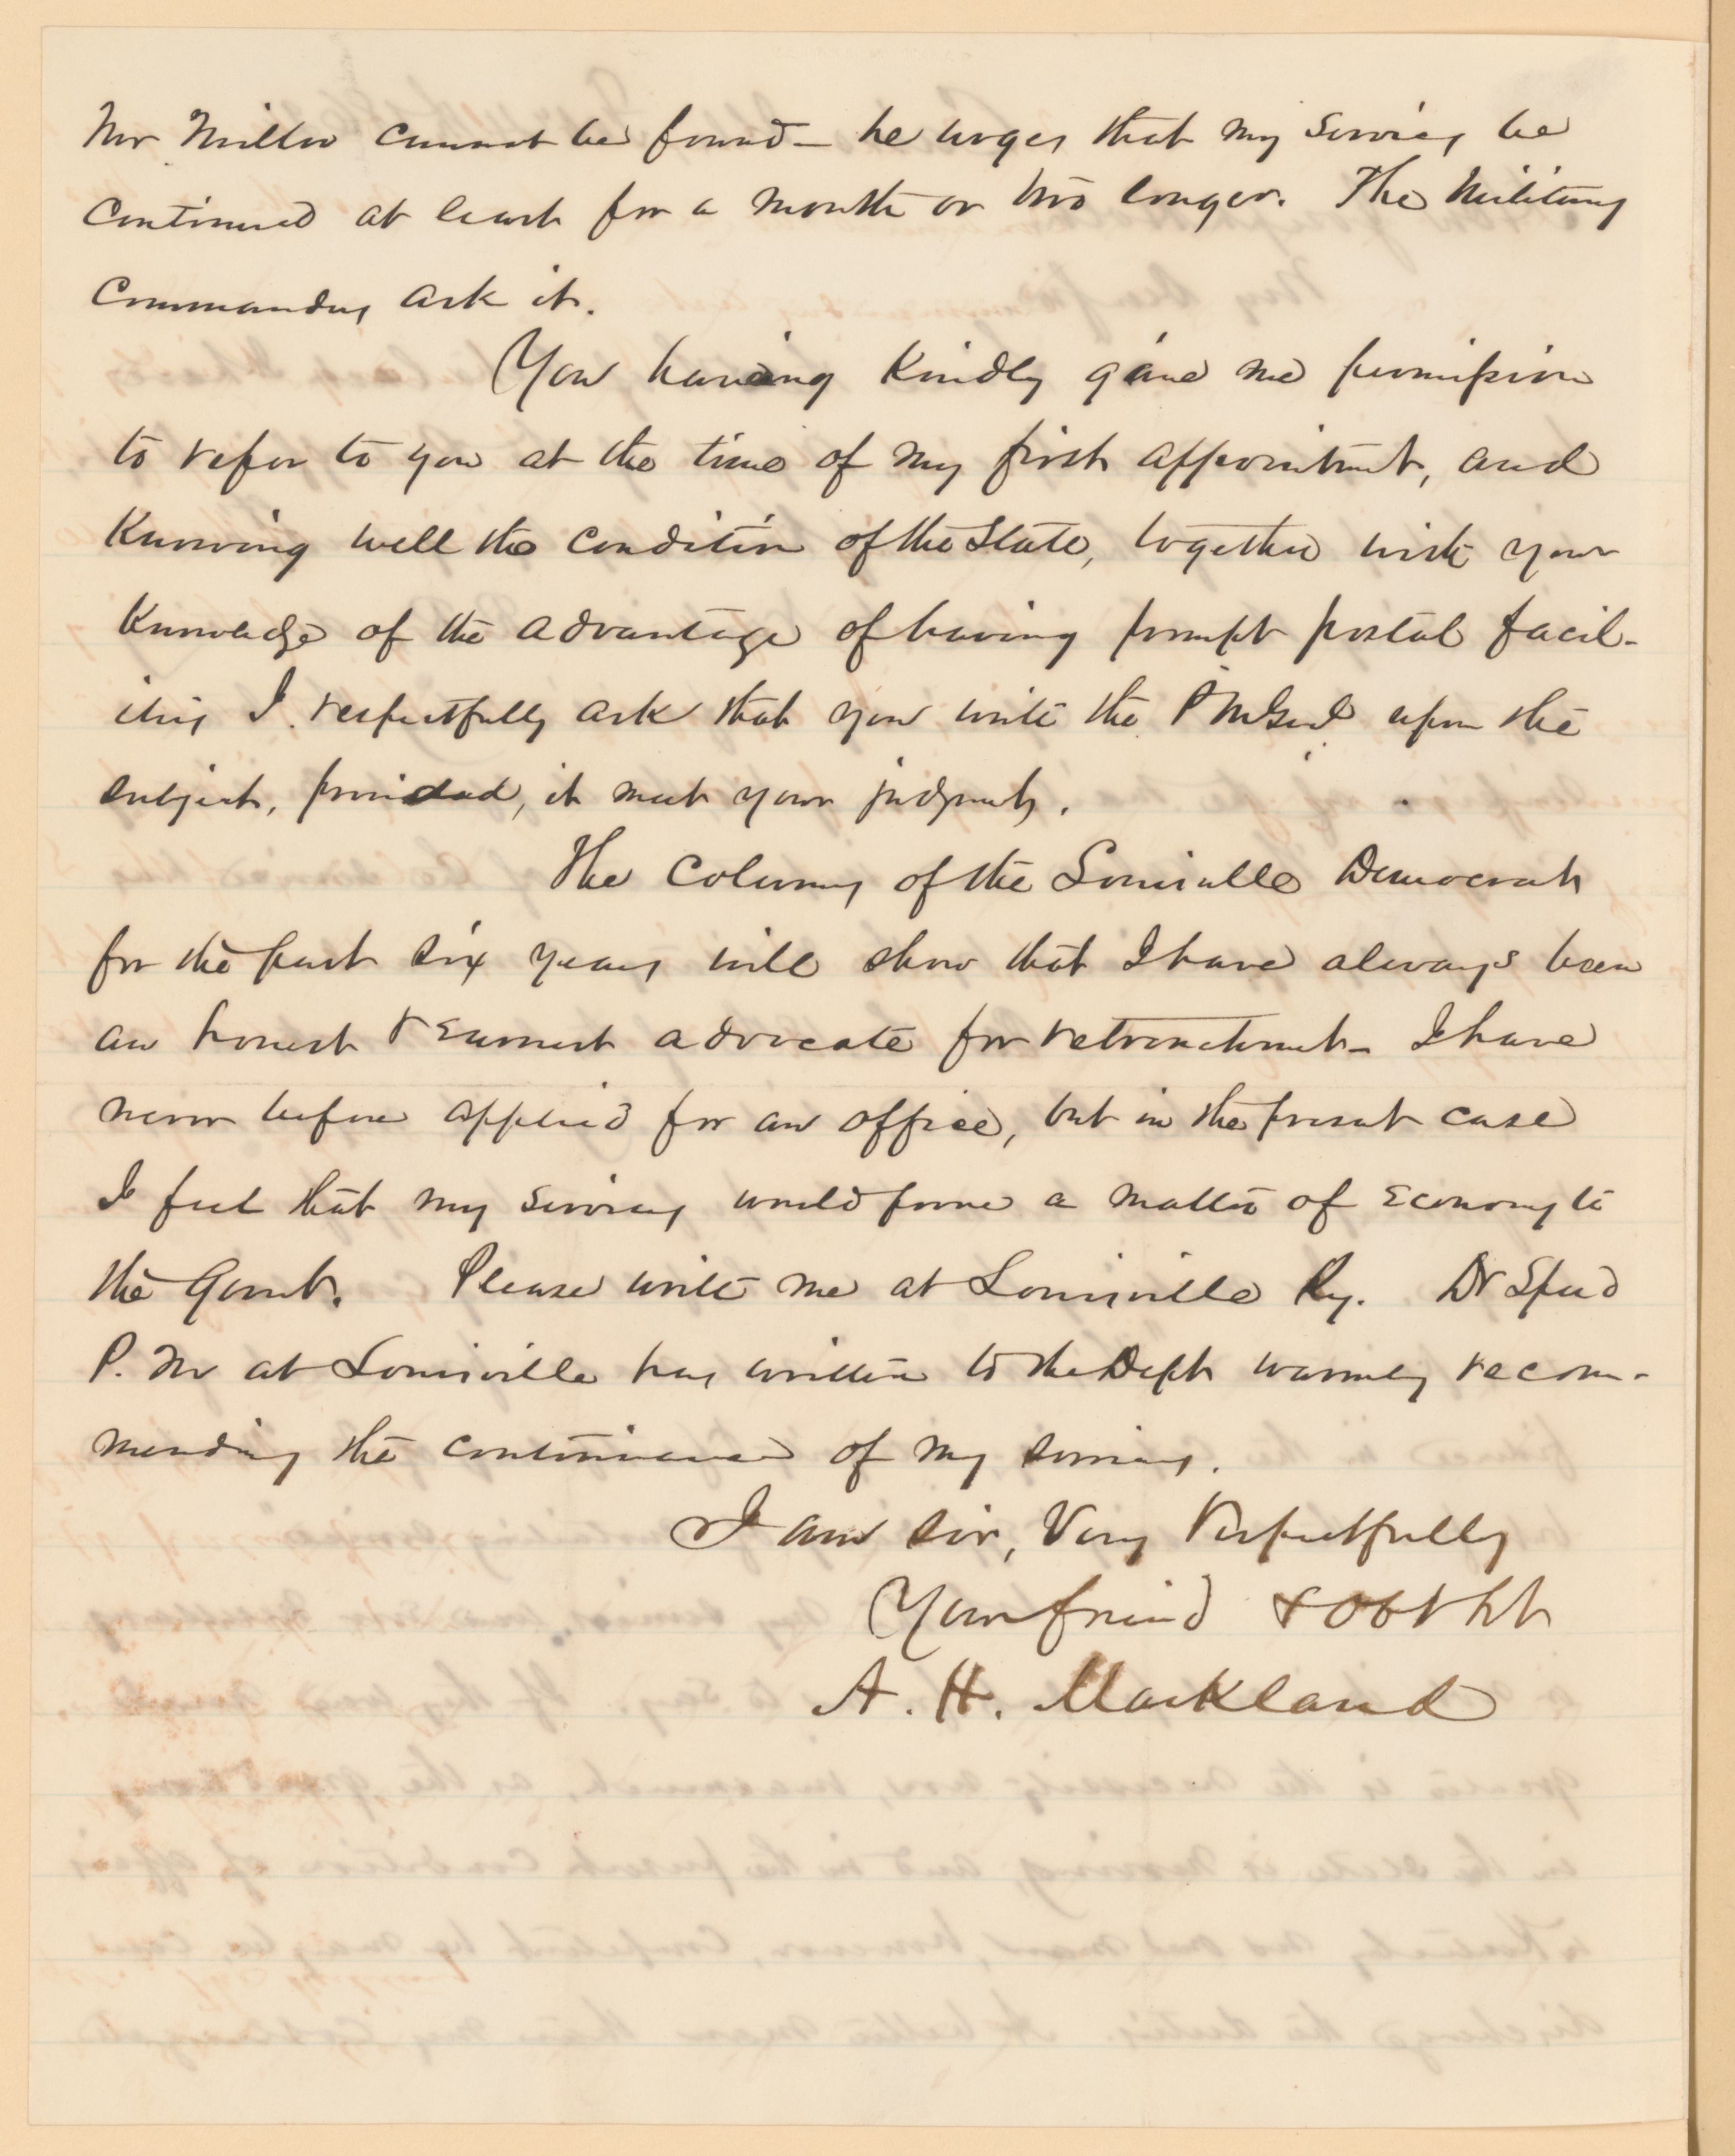 Mr Miller cannot be found – he urges that my services be
continued at least for a month or two longer. The Military
Commanders ask it.
You having kindly gave me permission
to refer to you at the time of my first appointment, and
Knowing well the condition of the State, together with your
Knowledge of the advantage of having prompt postal facil-
ities I respectfully ask that you write the P M Genl upon the
subject, provided, it meets your judgment.
The columns of the Louisville Democrat
for the past six years will show that I have always been
an honest & earnest advocate for retrenchment – I have
never before applied for an office, but in the present case
I feel that my services would prove a matter of economy to
the Govmt. Please write me at Louisville Ky. Dr Speed
P. M at Louisville has written to the Dept warmly recom-
mending the continuance of my services.
I am sir, Very Respectfully
Your friend & Obt St
A. H. Markland